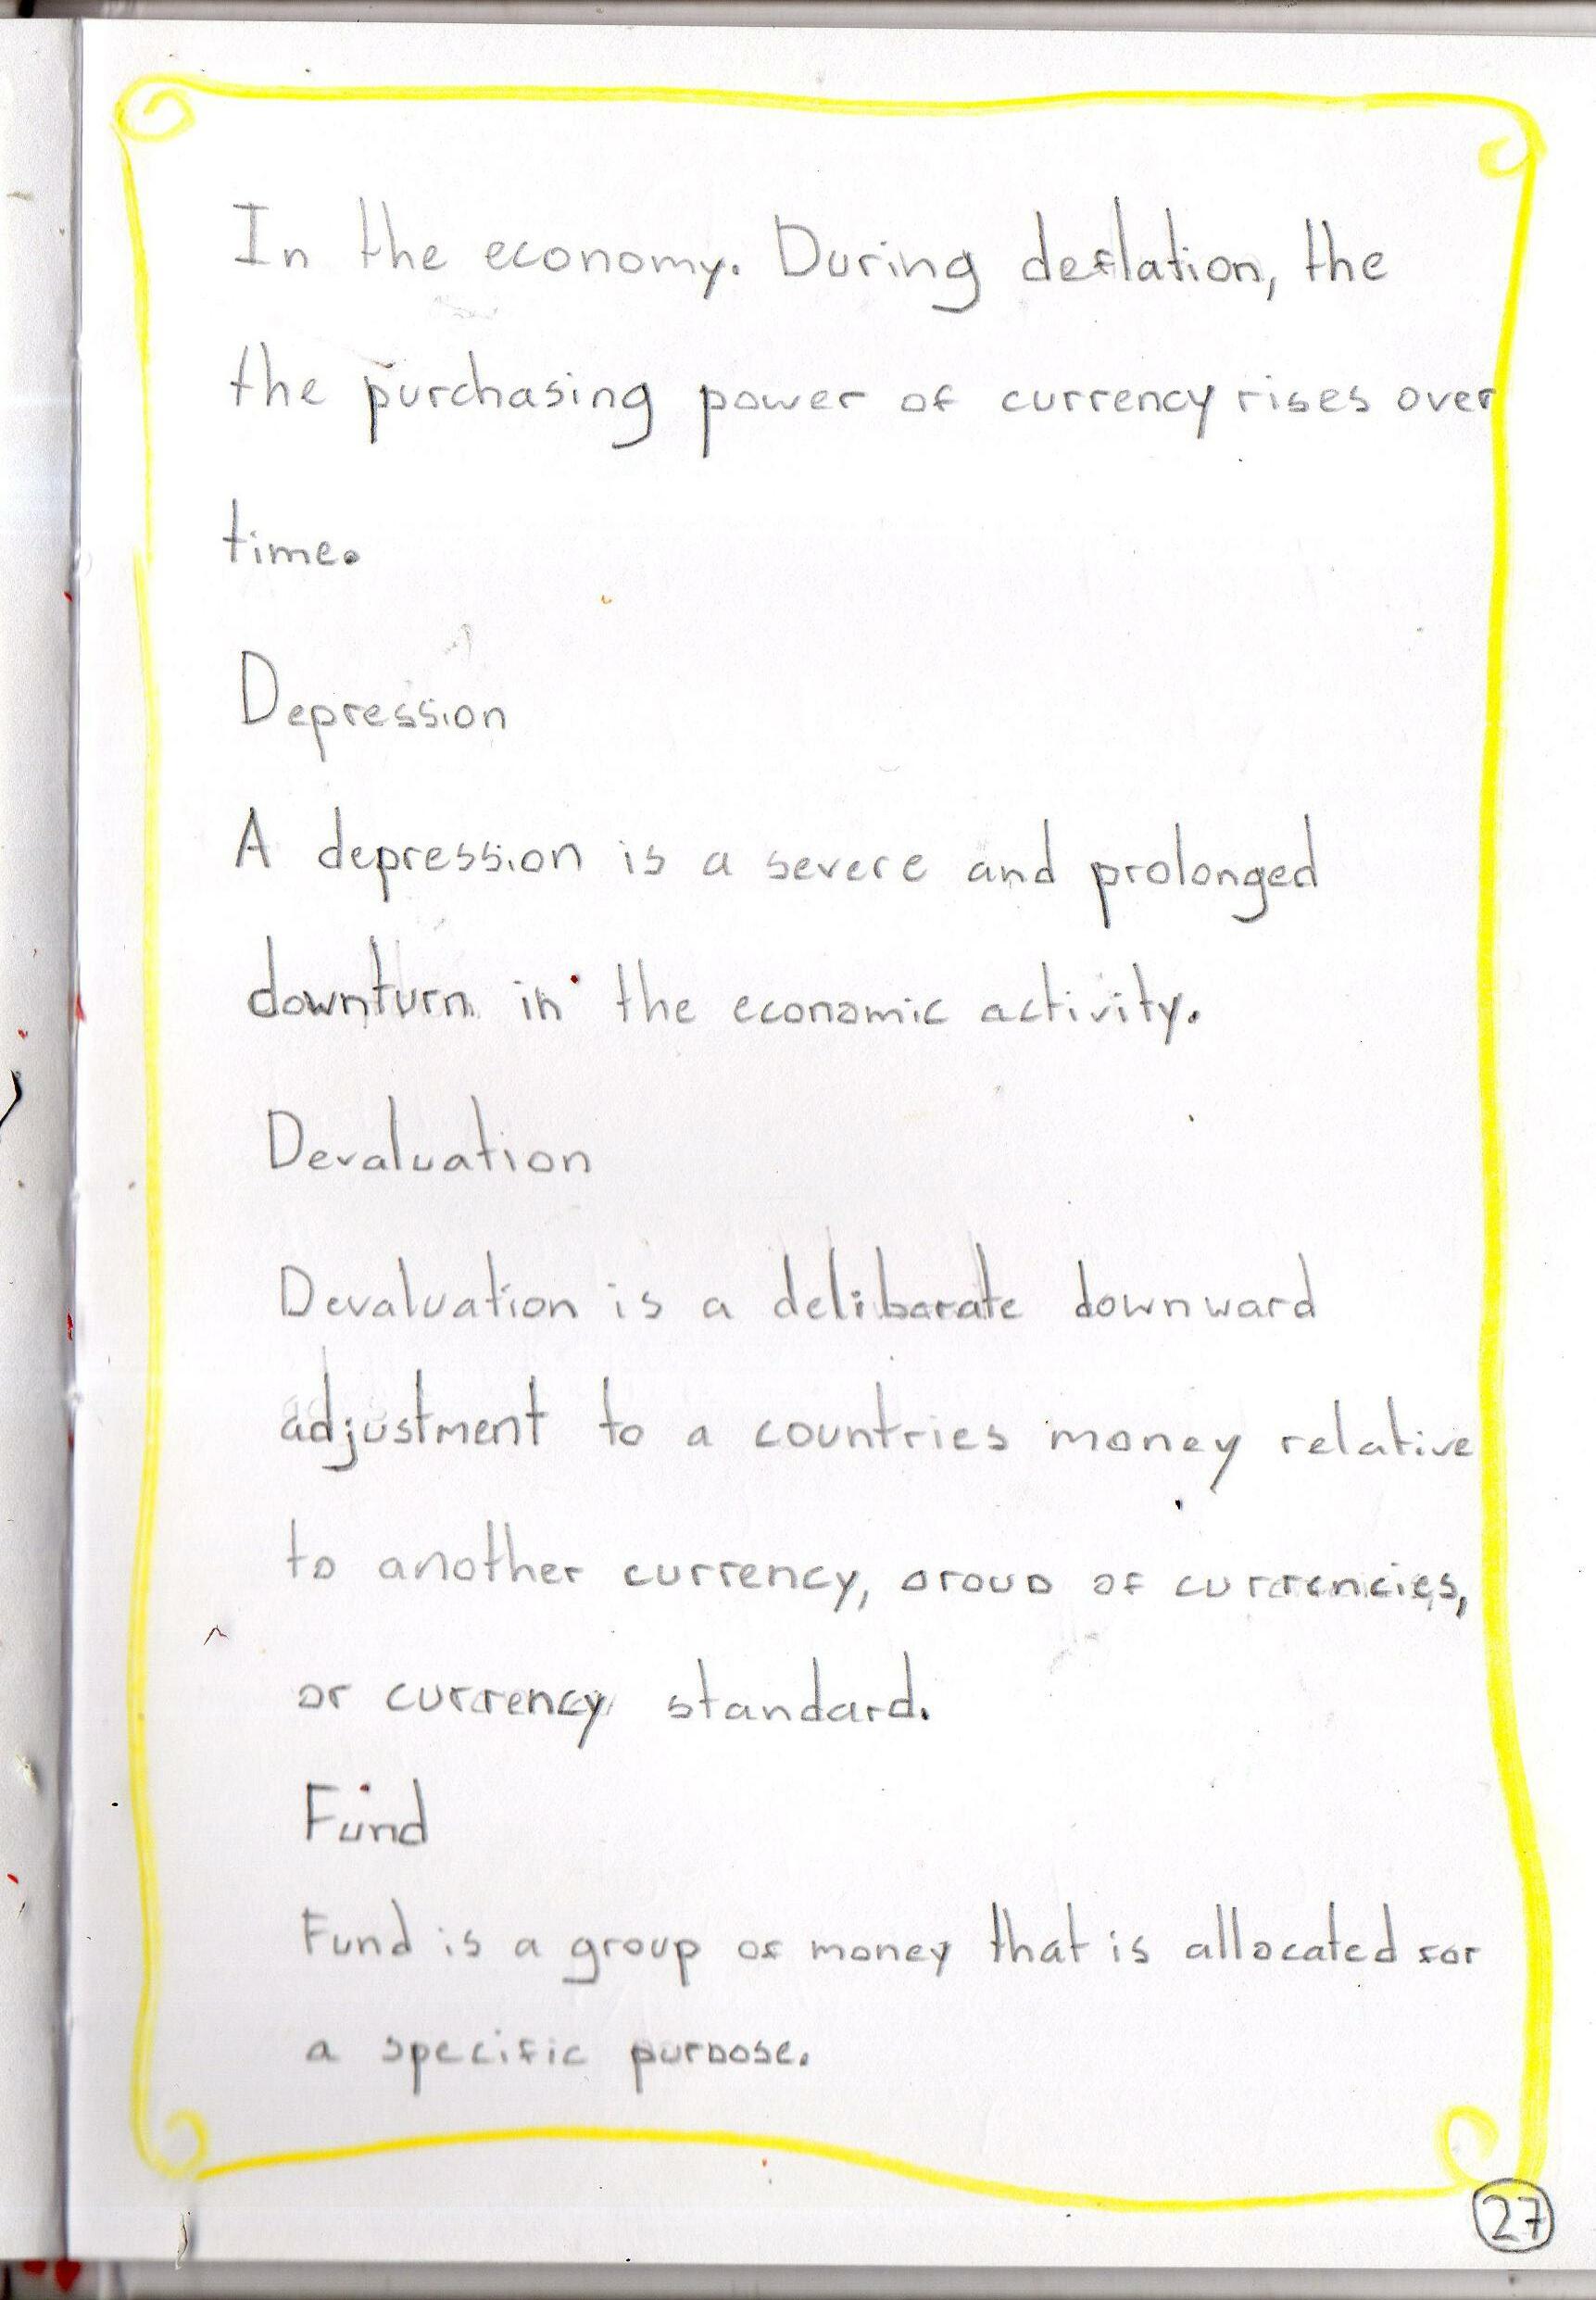 In the economy. During deflation, the
the purchasing power of currency rises over
time.
Depression
A depression is a severe and prolonged
downturn in the economic activity.
Devaluation
Devaluation is a deliberate downward
adjustment to a countries money relative
to another currency, group of currencies,
or currency standard.
Fund
Fund is a group of money that is allocated for
a specific purpose.
27